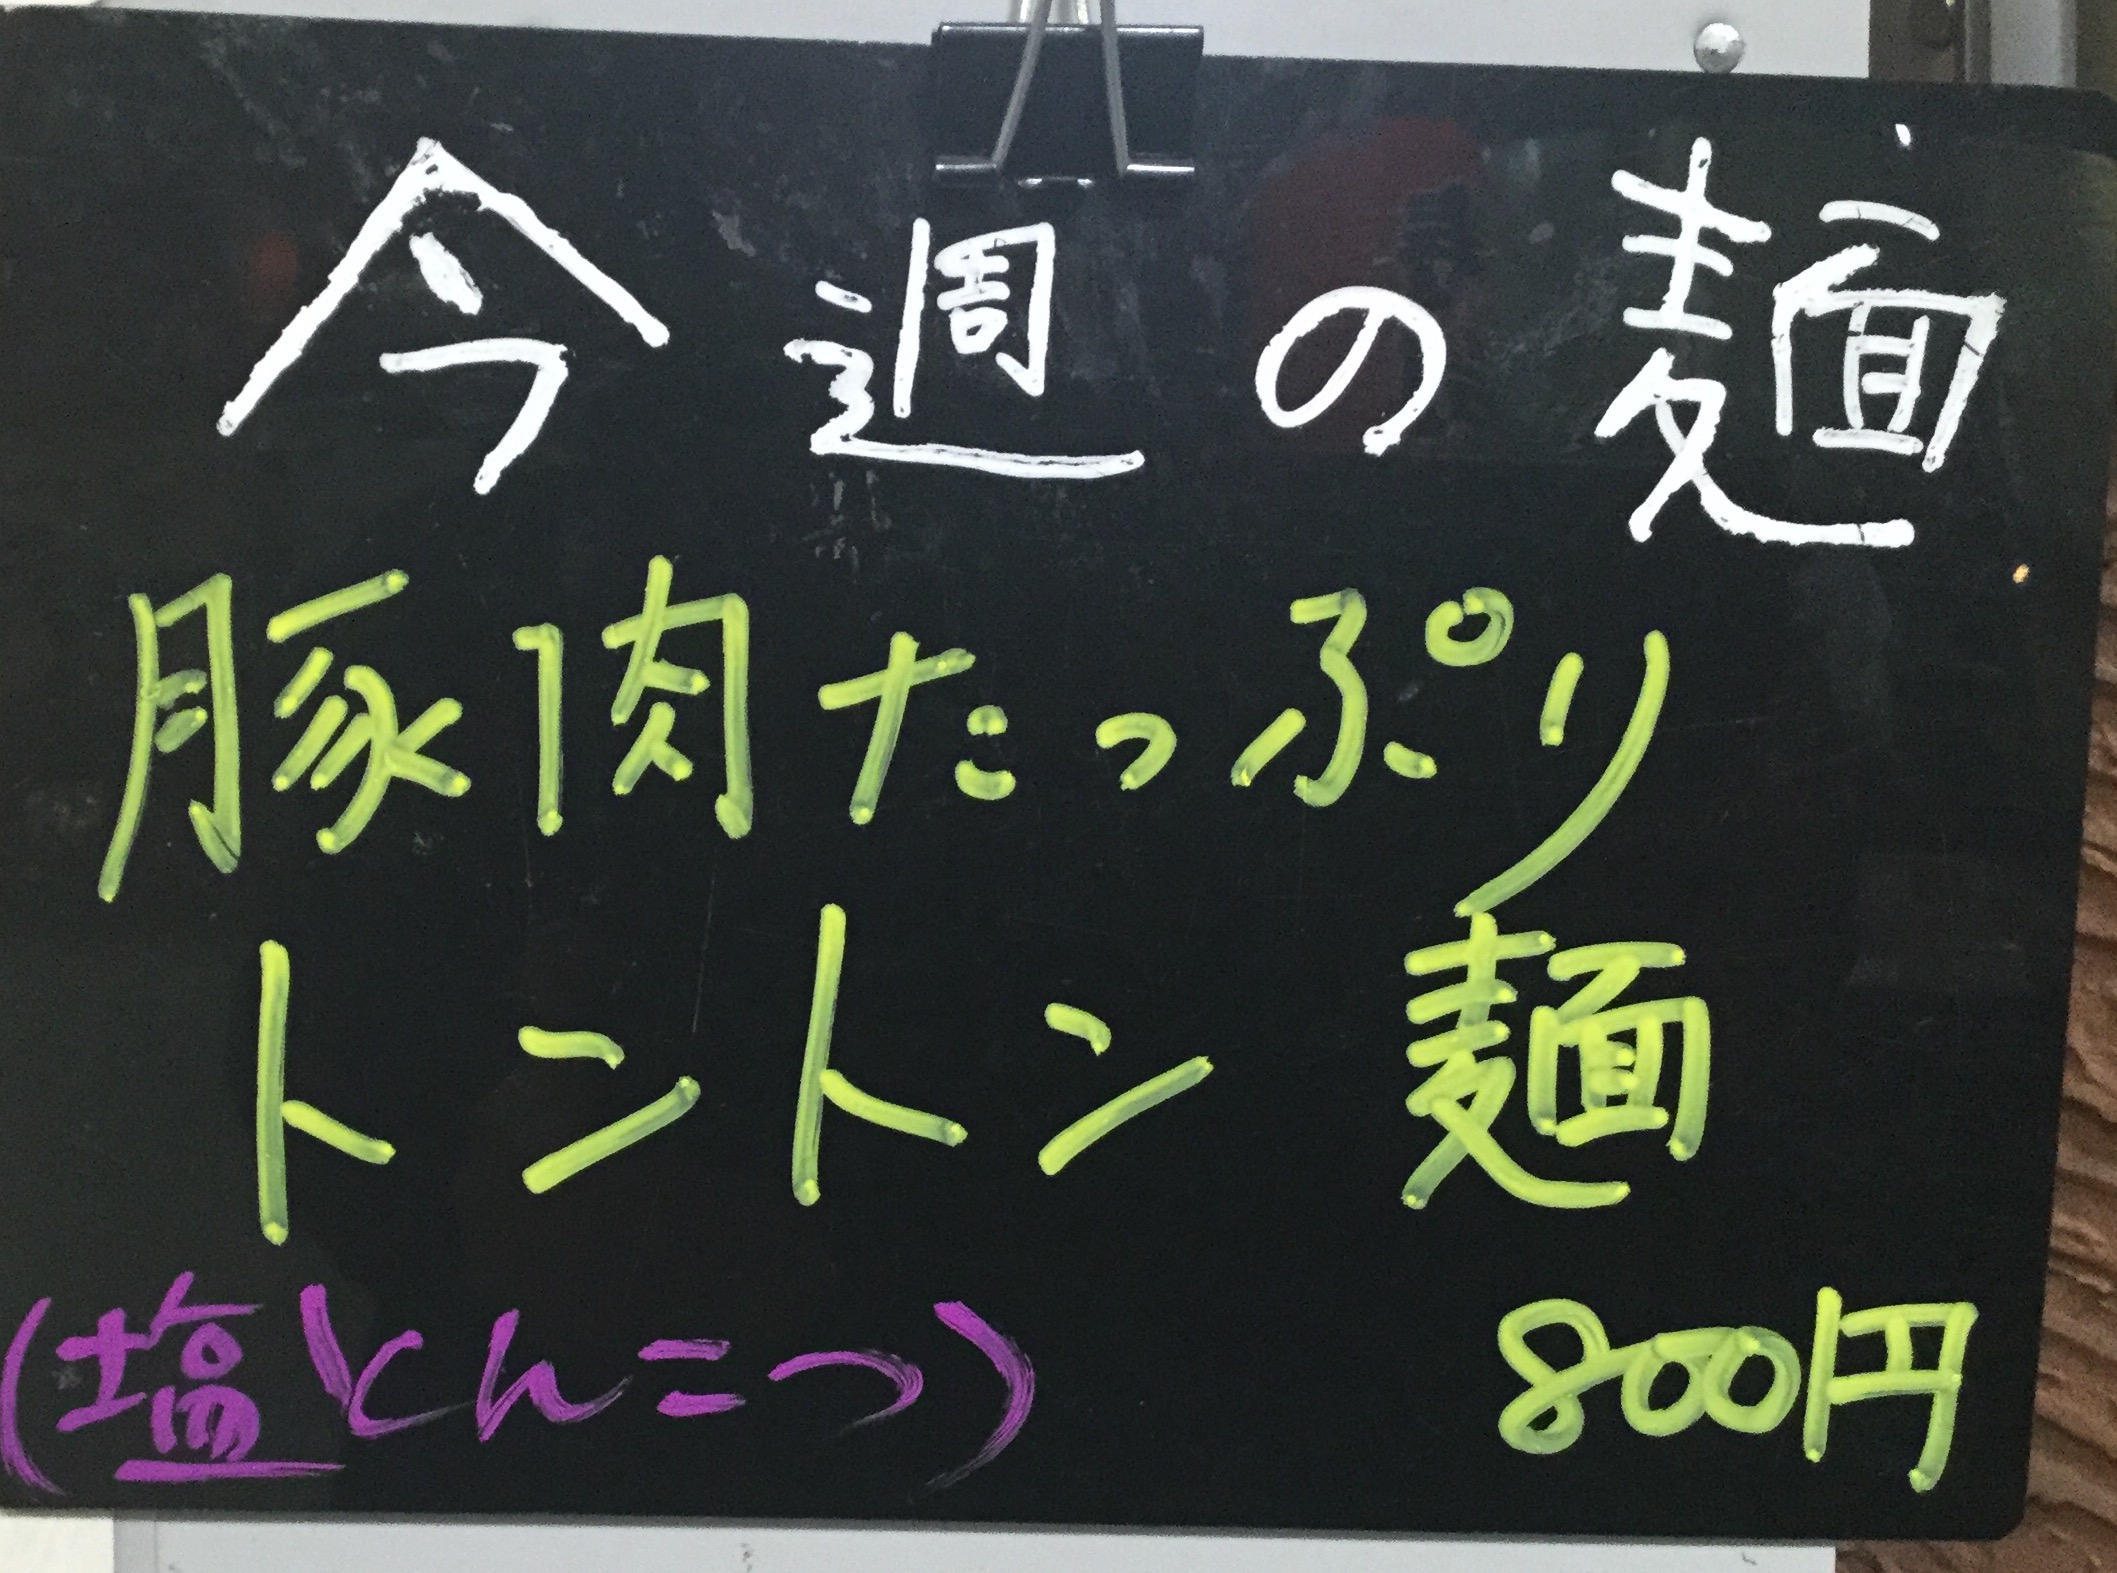 今週の麺
豚肉たっぷり
トントン麺
(塩とんこつ) 800円